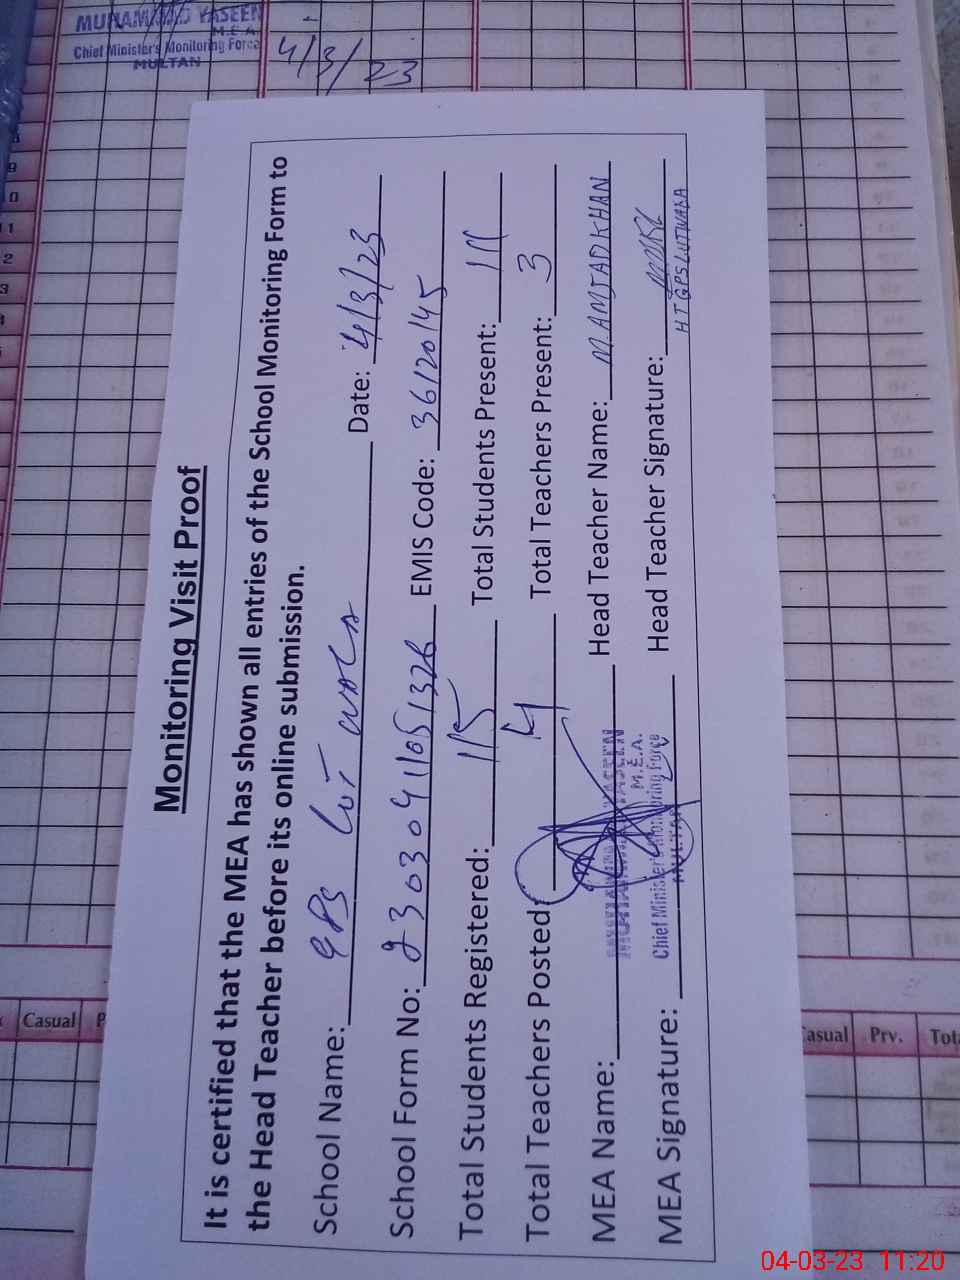 MUHAMMAD YASEEN
M.E.A
Chief Minister's Monitoring Force
MULTAN
4/3/23
Monitoring Visit Proof
It is certified that the MEA has shown all entries of the School Monitoring Form to
the Head Teacher before its online submission.
School Name: GPS LUT WALA Date: 4/3/23
School Form No: EMIS Code: 36120145
Total Students Registered: 115 Total Students Present: 111
Total Teachers Posted: 4 Total Teachers Present: 3
MEA Name: MUHAMMAD YASEEN Head Teacher Name: M. AMJAD KHAN
M.E.A.
Chief Minister's Monitoring Force
MULTAN
MEA Signature: Head Teacher Signature:
HT GPS LUTWALA
Casual
Casual Prv. Tot
8
9
10
11
2
3
04-03-23 11:20